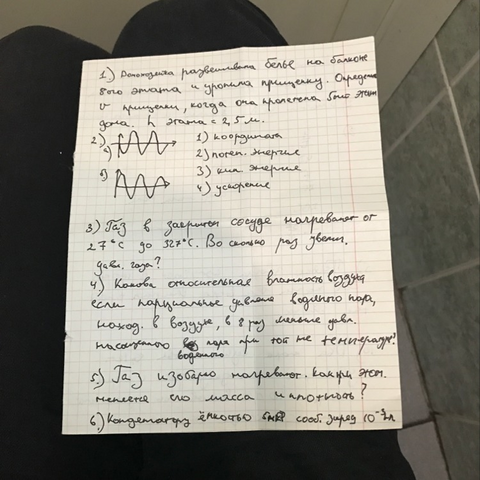 1.) Домохозяйка развешивала белье на балконе
8ого этажа и уронила прищепку. Определите
v прищепки, когда она пролетела 5ый этаж
дома. h этажа = 2,5 м.
2.) 1) координата
а) 2) потен. энергия
б) 3) кин. энергия
4) ускорение
3.) Газ в закрытом сосуде нагревают от
27°C до 327°C. Во сколько раз увелич.
давл. газа?
4.) Какова относительная влажность воздуха
если парциальное давление водяного пара,
наход. в воздухе, в 8 раз меньше давл.
насыщенного пара при той же температуре?
водяного
5.) Газ изобарно нагревают. Как при этом
меняется его масса и плотность?
6.) Конденсатору ёмкостью сооб. заряд 10⁻⁹